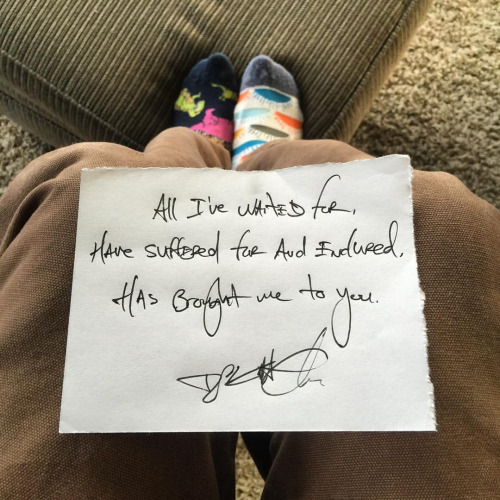 All I've waited for,
Have suffered for And Endured,
Has Brought me to you.